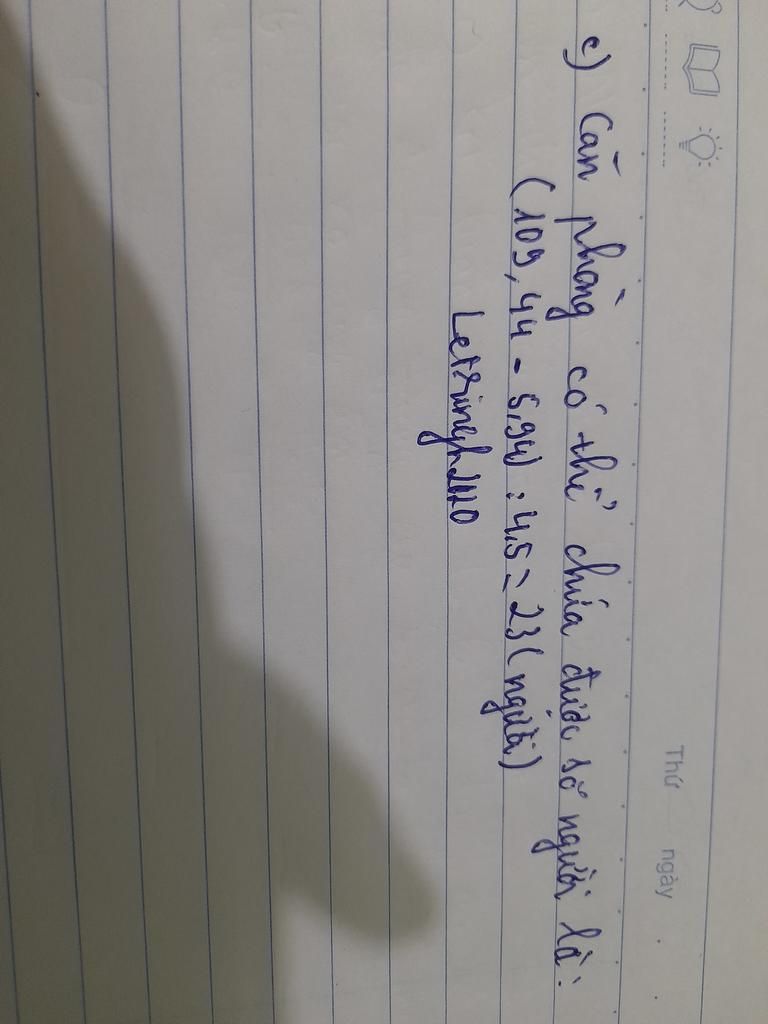 Thứ ngày
c) Căn phòng có thể chứa được số người là:
(109,44 - 5,94) : 4,5 = 23 (người)